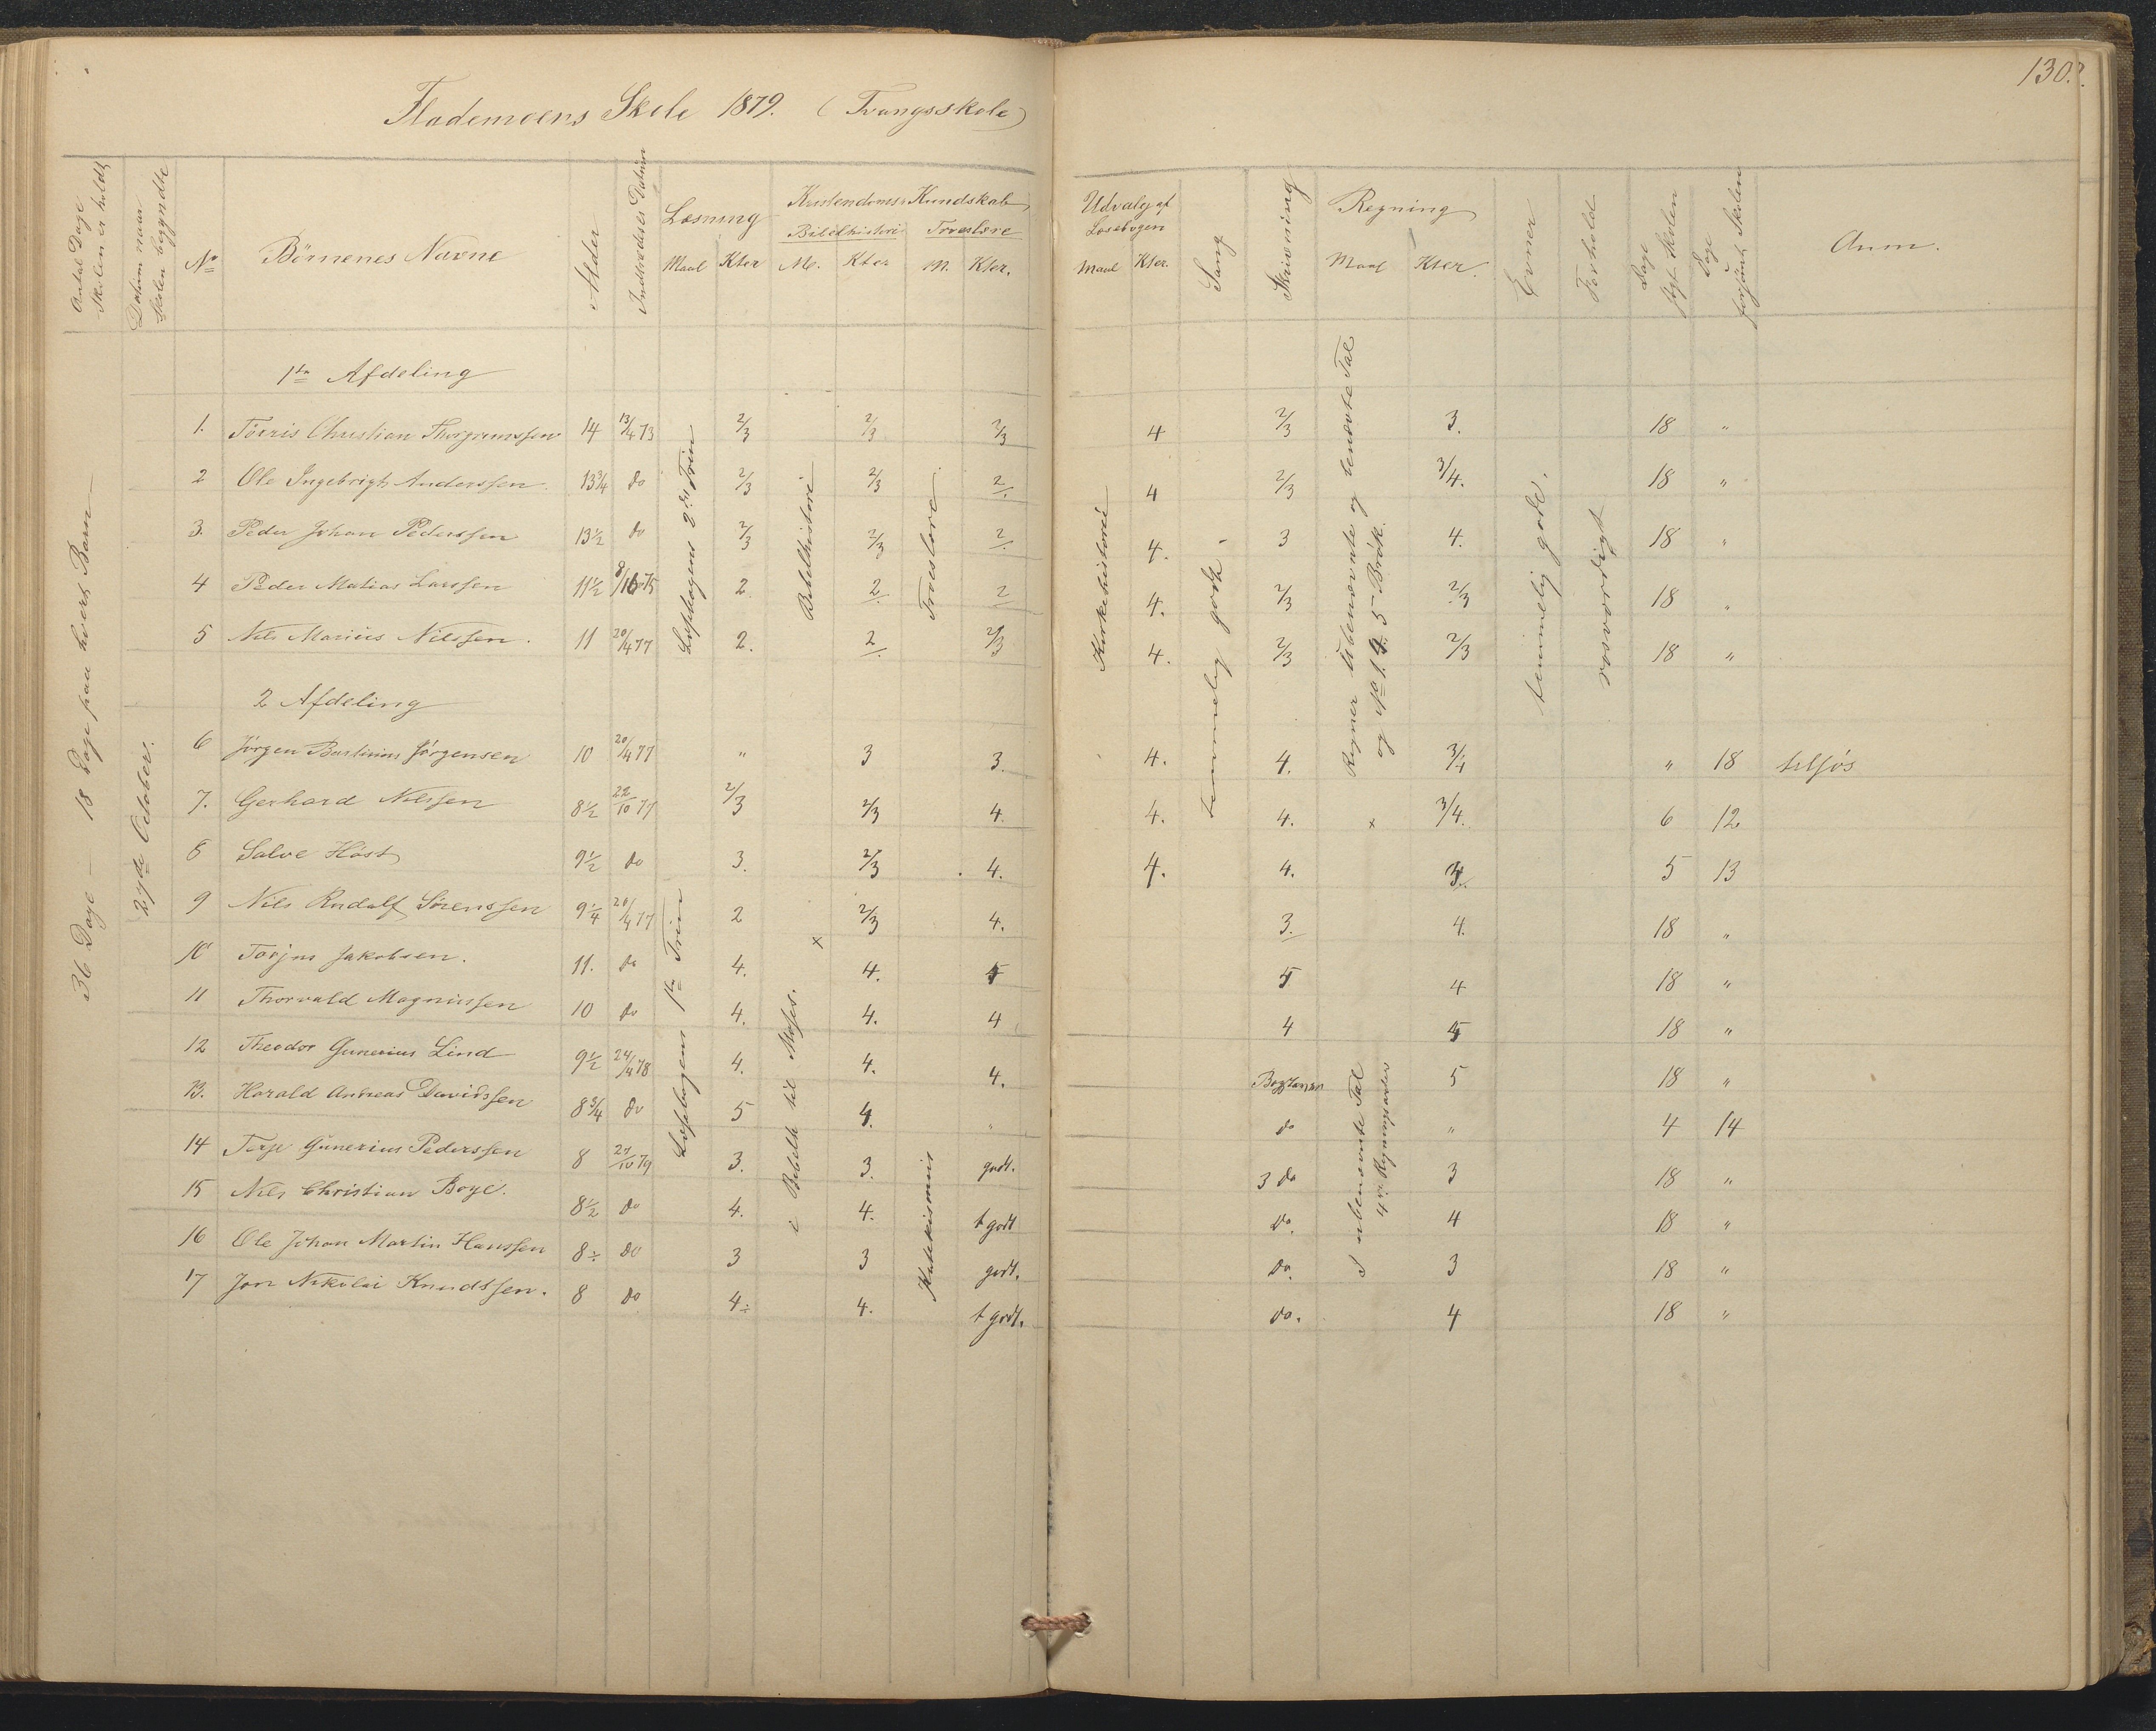 130.
Flademoens Skole 1879. (Tvangsskole)
Antal Dage Skolen er holdt
Datum naar Skolen begyndte
No
Börnenes Navne
Alder
Indtrædelses Datum
Læsning
Maal Kter
Kristendoms Kundskab
Bibelhistorie Troeslære
M. Kter M. Kter.
Udvalg af Læsebogen
Maal Kter.
Sang
Skrivning
Regning
Maal Kter.
Evner
Forhold
Dage søgt Skolen
Dage forsömt Skolen
Anm.
36 Dage — 18 Dage paa hvert Barn
27de October.
1ste Afdeling
1. Törris Christian Thorgrimssen 14 13/4 73 2/3 2/3 2/3 4 2/3 3. 18 "
2 Ole Ingebrigt Anderssen. 13 3/4 do 2/3 2/3 2 4 2/3 3/4. 18 "
3. Peder Johan Pederssen 13 1/2 do 2/3 2/3 2 4. 3 4. 18 "
4 Peder Matias Larssen 11 1/2 8/10 75 2. 2 2 4. 2/3 2/3 18 "
5 Nils Marius Nilssen. 11 20/4 77 2. 2 2/3 4. 2/3 2/3 18 "
2 Afdeling
6 Jörgen Bastinius Jörgensen 10 20/4 77 " 3 3. 4. 4. 3/4 " 18 tilsjös
7. Gerhard Nilssen 8 1/2 22/10 77 2/3 2/3 4. 4. 4. x 3/4. 6 12
8 Salve Höst 9 1/2 do 3. 2/3 4. 4. 4. 5 13
9 Nils Rudolf Sörenssen 9 1/4 20/4 77 2 2/3 4. 3. 4. 18 "
10 Torjus Jakobsen. 11. do 4. 4. 5 5 4 18 "
11 Thorvald Magnussen 10 do 4. 4. 4 4 5 18 "
12 Theodor Gunerius Lind 9 1/2 24/4 78 4. 4. 4. 5 18 "
13. Harald Andreas Davidssen 8 3/4 do 5 4. " do " 4 14
14 Terje Gunerius Pederssen 8 27/10 79 3. 3. godt. 3 do 3 18 "
15 Nils Christian Boye. 8 1/2 do 4. 4. t godt do. 4 18 "
16 Ole Johan Martin Hanssen 8 ÷ do 3 3 godt. do. 3 18 "
17 Jon Nikolai Knudtssen. 8 do 4 ÷ 4. t godt. do. 4 18 "
Læsebogens 2det Trin
Bibelhistorie
Troeslære
Læsebogens 1ste Trin
i Bibelh til Moses.
x
Katekismus
Kirkehistorie
temmelig godt.
Regner ubenævnte og benævnte Tal
og
5 Brök.
I ubenævnte Tal
4re Regningsarter
temmelig gode.
rosværdigt